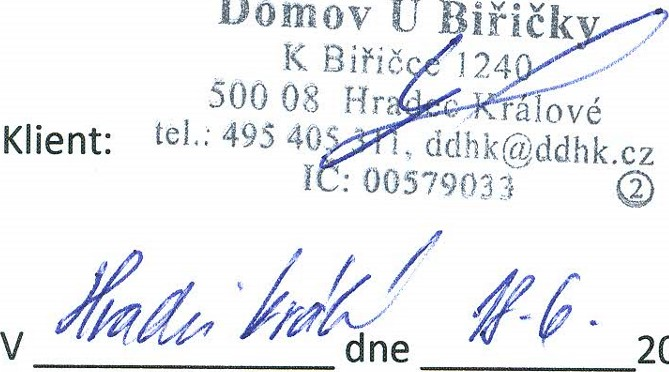 Domov U Biřičky
K Biřičce 1240
500 08 Hradec Králové
Klient: tel.: 495 405 311, ddhk@ddhk.cz
IČ: 00579033 2
V Hradci Král dne 18.6. 20